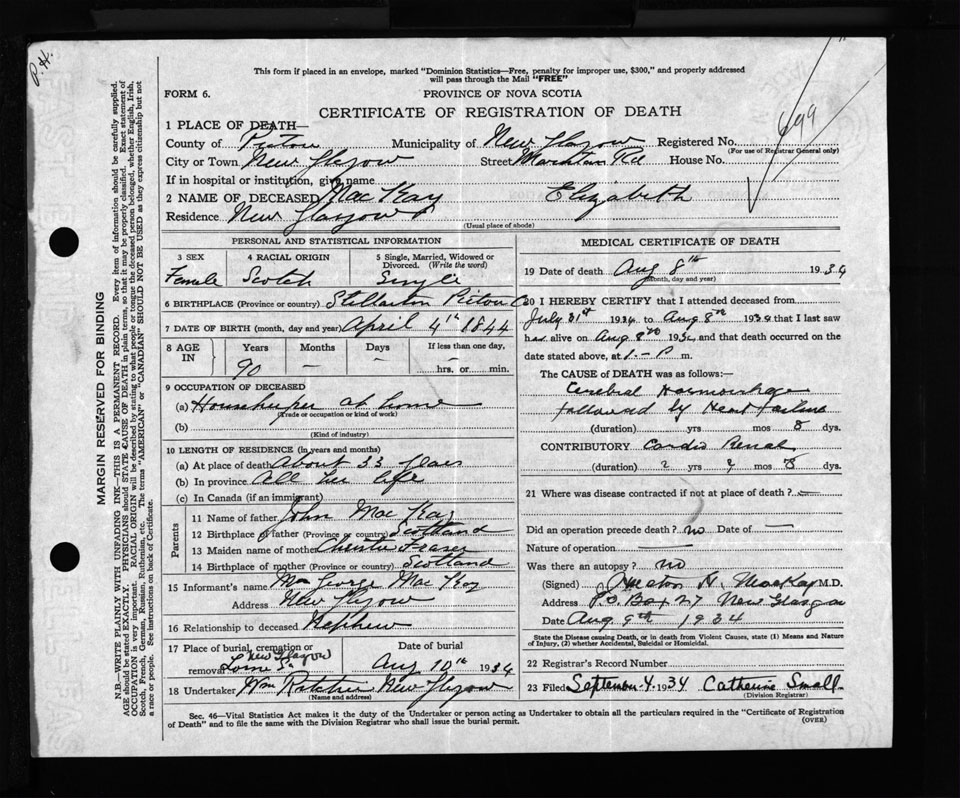 P. H.
This form if placed in an envelope, marked "Dominion Statistics—Free, penalty for improper use, $300," and properly addressed
will pass through the Mail "FREE"
FORM 6. PROVINCE OF NOVA SCOTIA
CERTIFICATE OF REGISTRATION OF DEATH
699
1 PLACE OF DEATH—
County of Pictou Municipality of New Glasgow Registered No.
(For use of Registrar General only)
City or Town New Glasgow Street Marshtown Rd House No.
If in hospital or institution, give name
2 NAME OF DECEASED Mac Kay Elizabeth
Residence New Glasgow
(Usual place of abode)
PERSONAL AND STATISTICAL INFORMATION
3 SEX 4 RACIAL ORIGIN 5 Single, Married, Widowed or
Divorced. (Write the word)
Female Scotch Single
6 BIRTHPLACE (Province or country) Stellarton Pictou Co
7 DATE OF BIRTH (month, day and year) April 4th 1844
8 AGE IN Years Months Days If less than one day,
90 — — hrs. or min.
9 OCCUPATION OF DECEASED
(a) Housekeeper at home
(Trade or occupation or kind of work)
(b)
(Kind of industry)
10 LENGTH OF RESIDENCE (In years and months)
(a) At place of death About 33 years
(b) In province All her life
(c) In Canada (if an immigrant)
Parents
11 Name of father John Mac Kay
12 Birthplace of father (Province or country) Scotland
13 Maiden name of mother Fraser
14 Birthplace of mother (Province or country) Scotland
15 Informant's name George Mac Kay
Address New Glasgow
16 Relationship to deceased Nephew
17 Place of burial, cremation or removal New Glasgow Lorne St Date of burial Aug 10th 1934
18 Undertaker Wm Ritchie New Glasgow
(Name and address)
MEDICAL CERTIFICATE OF DEATH
19 Date of death Aug 8th 1934
(Month, day and year)
20 I HEREBY CERTIFY that I attended deceased from
July 31st 1934 to Aug 8th 1934 that I last saw
her alive on Aug 8th 1934, and that death occurred on the
date stated above, at 1.- P m.
The CAUSE of DEATH was as follows:—
Cerebral Haemorrhage
followed by Heart Failure
(duration) yrs mos 8 dys.
CONTRIBUTORY Cardio Renal
(duration) 2 yrs ? mos 8 dys.
21 Where was disease contracted if not at place of death? —
Did an operation precede death? no Date of —
Nature of operation —
Was there an autopsy? no
(Signed) H. MacKay M.D.
Address P.O. Box 27 New Glasgow
Date Aug 9th 1934
State the Disease causing Death, or in death from Violent Causes, state (1) Means and Nature
of Injury, (2) whether Accidental, Suicidal or Homicidal.
22 Registrar's Record Number
23 Filed September 4. 1934 Catherine Small
(Division Registrar)
Sec. 46—Vital Statistics Act makes it the duty of the Undertaker or person acting as Undertaker to obtain all the particulars required in the "Certificate of Registration
of Death" and to file the same with the Division Registrar who shall issue the burial permit. (OVER)
MARGIN RESERVED FOR BINDING
N.B.—WRITE PLAINLY WITH UNFADING INK—THIS IS A PERMANENT RECORD. Every item of information should be carefully supplied.
AGE should be stated EXACTLY. PHYSICIANS should STATE CAUSE OF DEATH in plain terms, so that it may be properly classified. Exact statement of
OCCUPATION is very important. RACIAL ORIGIN will be described by stating to what people or tongue the deceased person belonged, whether English, Irish,
Scotch, French, German, Russian, Ruthenian, etc. The terms "AMERICAN" or "CANADIAN" SHOULD NOT BE USED as they express citizenship but not
a race or people. See instructions on back of Certificate.